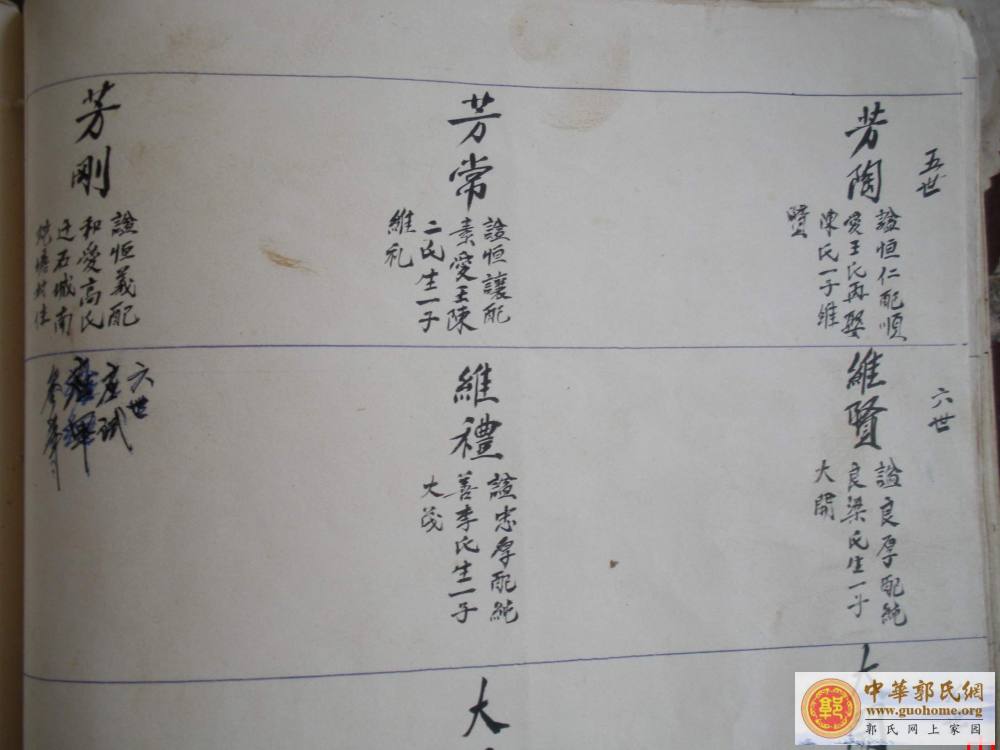 五世
芳陶
諡恒仁配順
愛王氏再娶
陳氏一子維
賢
芳常
諡恒讓配
素愛王陳
二氏生一子
維礼
芳剛
諡恒義配
和愛高氏
迁石城南
住
六世
維賢
諡良厚配純
良梁氏生一子
大開
維禮
諡忠厚配純
善李氏生一子
大茂
六世
应试
大
大
中華郭氏網
www.guohome.org
郭氏网上家园